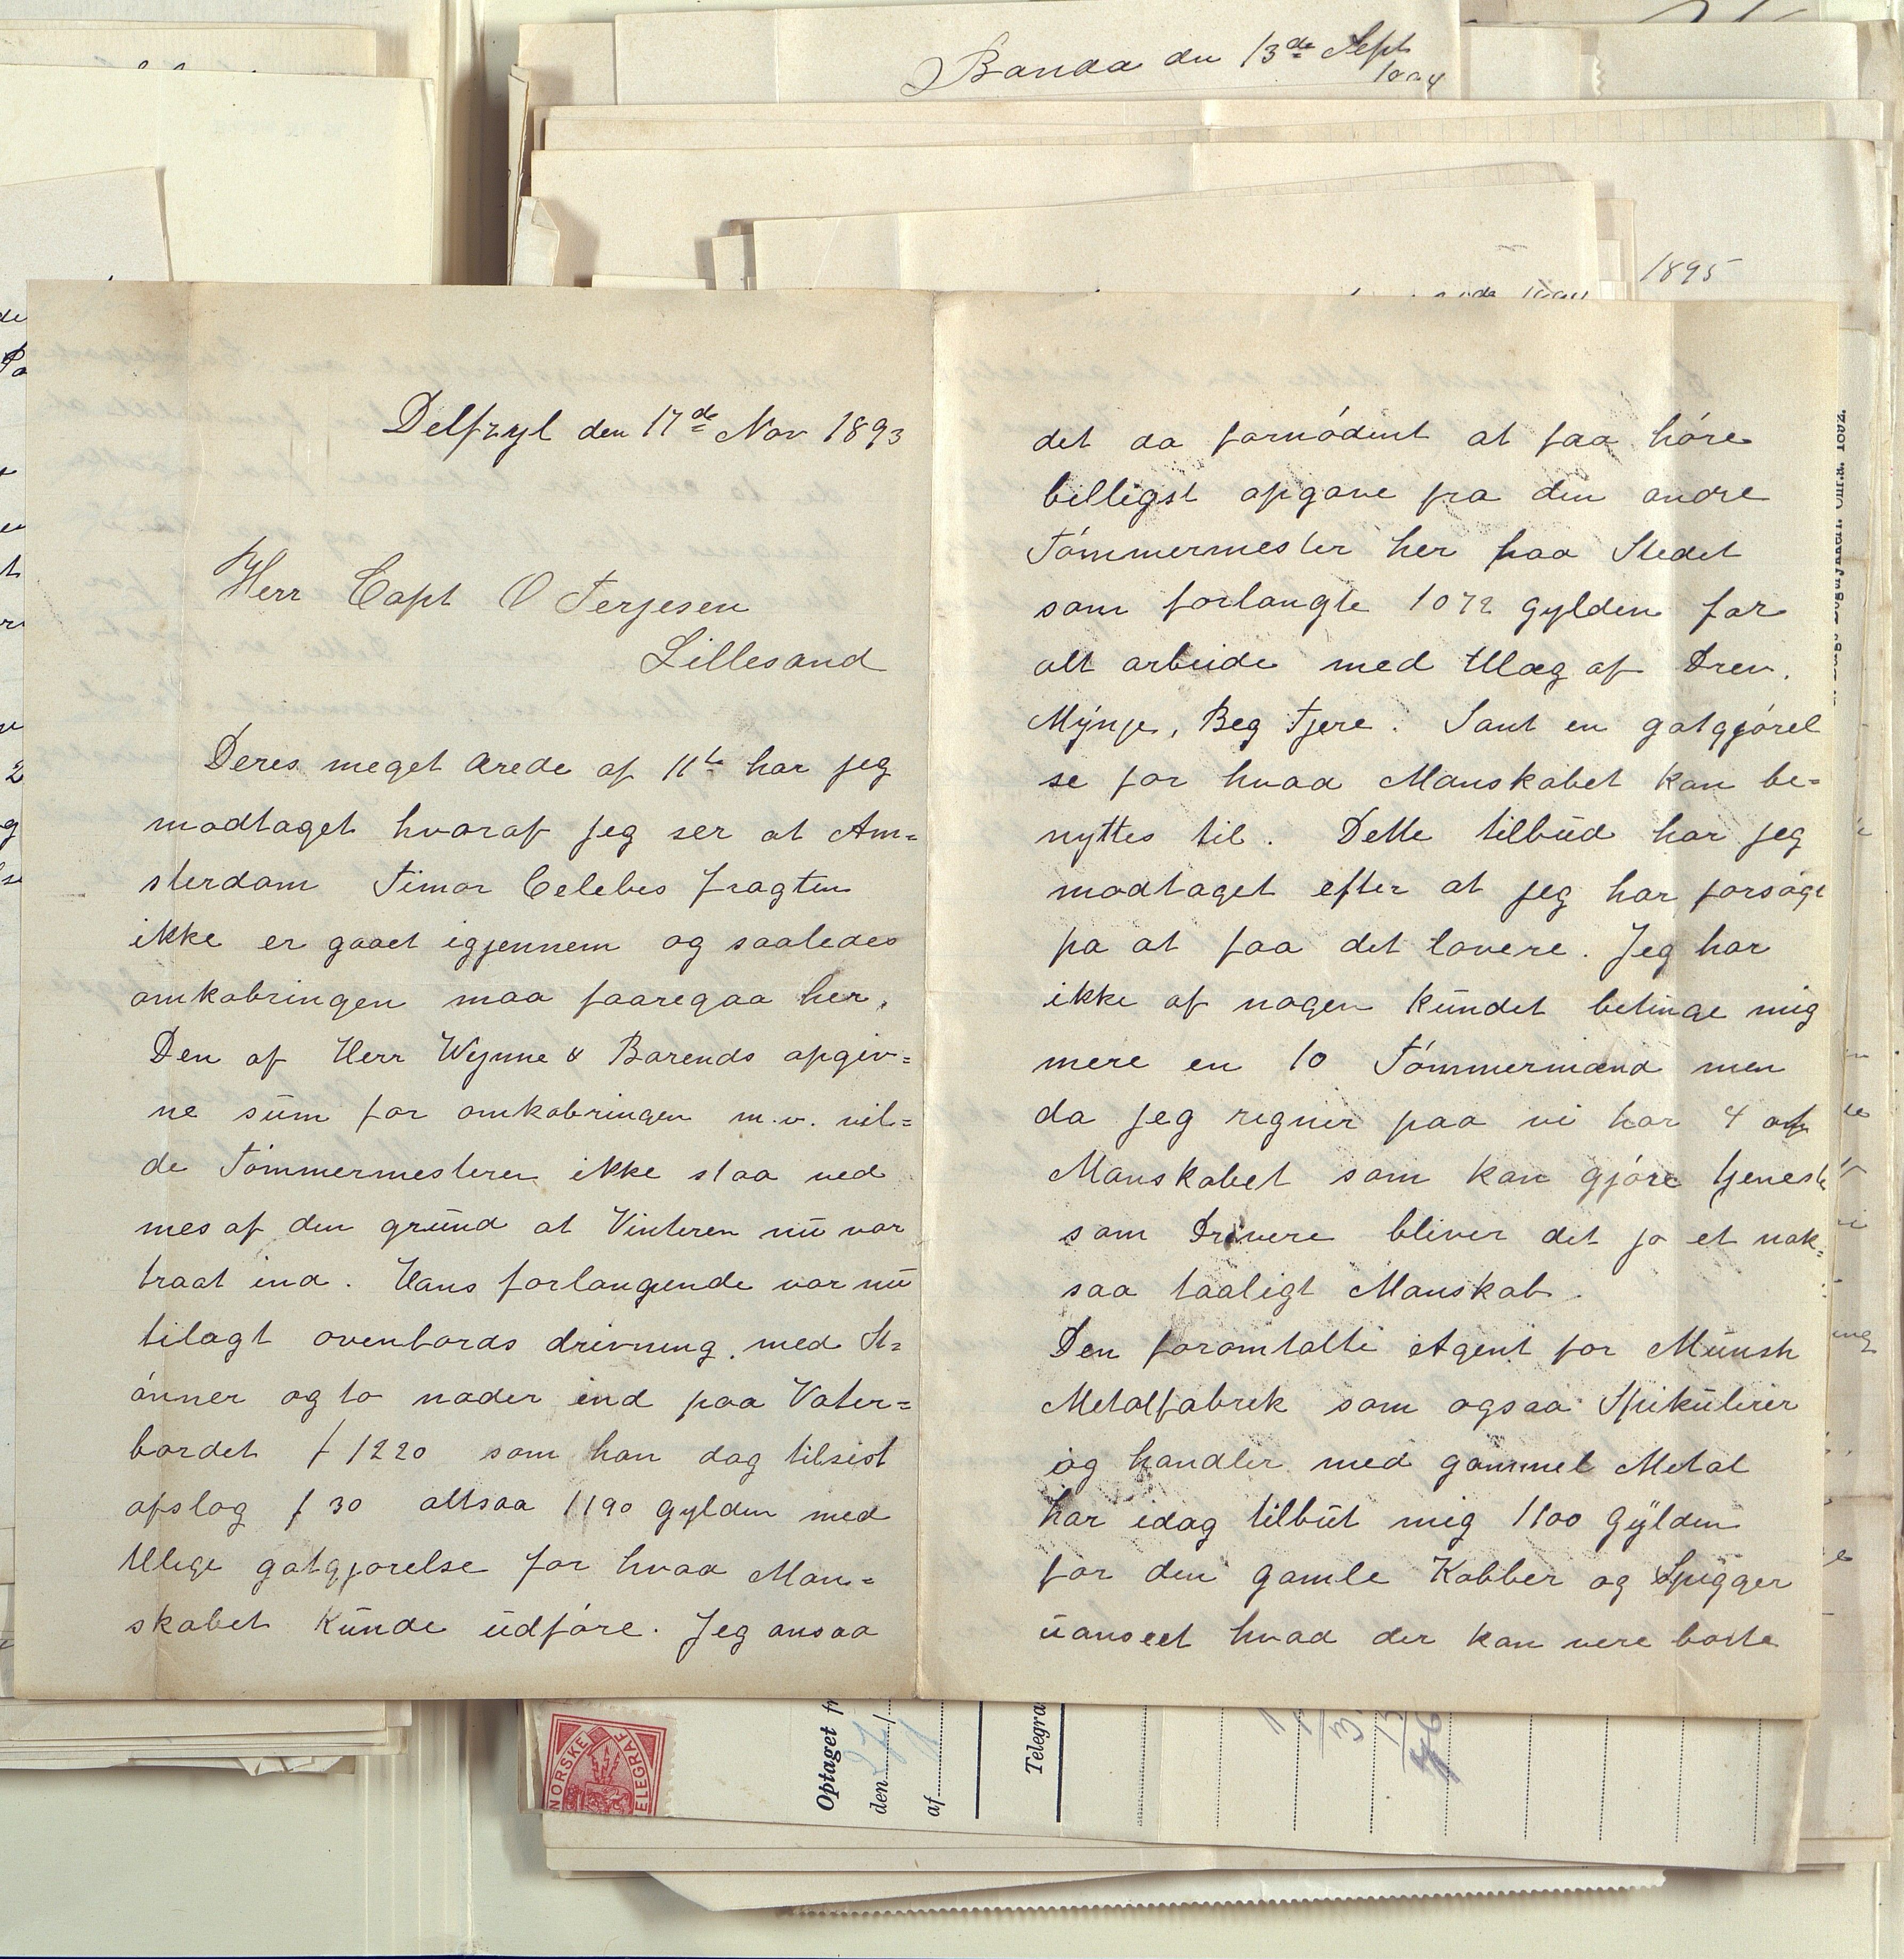 Banda den 13de Sept
1895
Delfzyl den 17de Nov 1893
Herr Capt O Terjesen
Lillesand
Deres meget ærede af 11te har jeg
modtaget hvoraf jeg ser at Am=
sterdam Timor Celebes fragten
ikke er gaaet igjennem og saaledes
omkobringen maa faaregaa her.
Den af Herr Wynne & Barends opgiv=
ne süm for omkobringen m.v. vil=
de Tømmermesteren ikke staa ved
mes af den gründ at Vinteren nü var
traat ind. Hans forlangende var nü
tilagt ovenbords drivning med St=
ønner og to nader ind paa Vater=
bordet f 1220 som han dog tilsist
afslog f 30 altsaa 1190 gylden med
tllige gotgjorelse for hvad Man=
skabet Künde üdføre. Jeg ansaa
det da fornødent at faa høre
belligst opgave fra den andre
Tømmermester her paa Stedet
som forlangte 1072 gylden for
alt arbeide med tllæg af Drev.
Mynje, Beg Tjere. Samt en gotgjørel
se for hvad Manskabet kan be=
nyttes til. Dette tilbüd har jeg
modtaget efter at jeg har forsøgt
pa at faa det lavere. Jeg har
ikke af nogen Kündet betinge mig
mere en 10 Tømmermænd men
da jeg regner paa vi har 4 af
Manskabet som kan gjøre tjeneste
som Drivere bliver det jo et nok=
saa taaligt Manskab.
Den foromtalte Agent for Münsh
Metalfabrek som ogsaa Spekülerer
og handler med gammel Metal
har idag tilbüt mig 1100 Gylden
for den gamle Kobber og Spigger
üanseet hvad der kan vere borte
NORSKE
TELEGRAF
Optaget fr
den 27/
af
Telegra